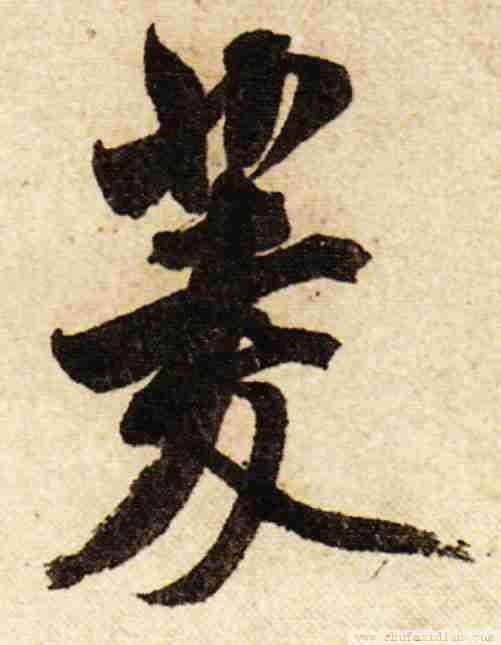 菱
www.shufazidian.com